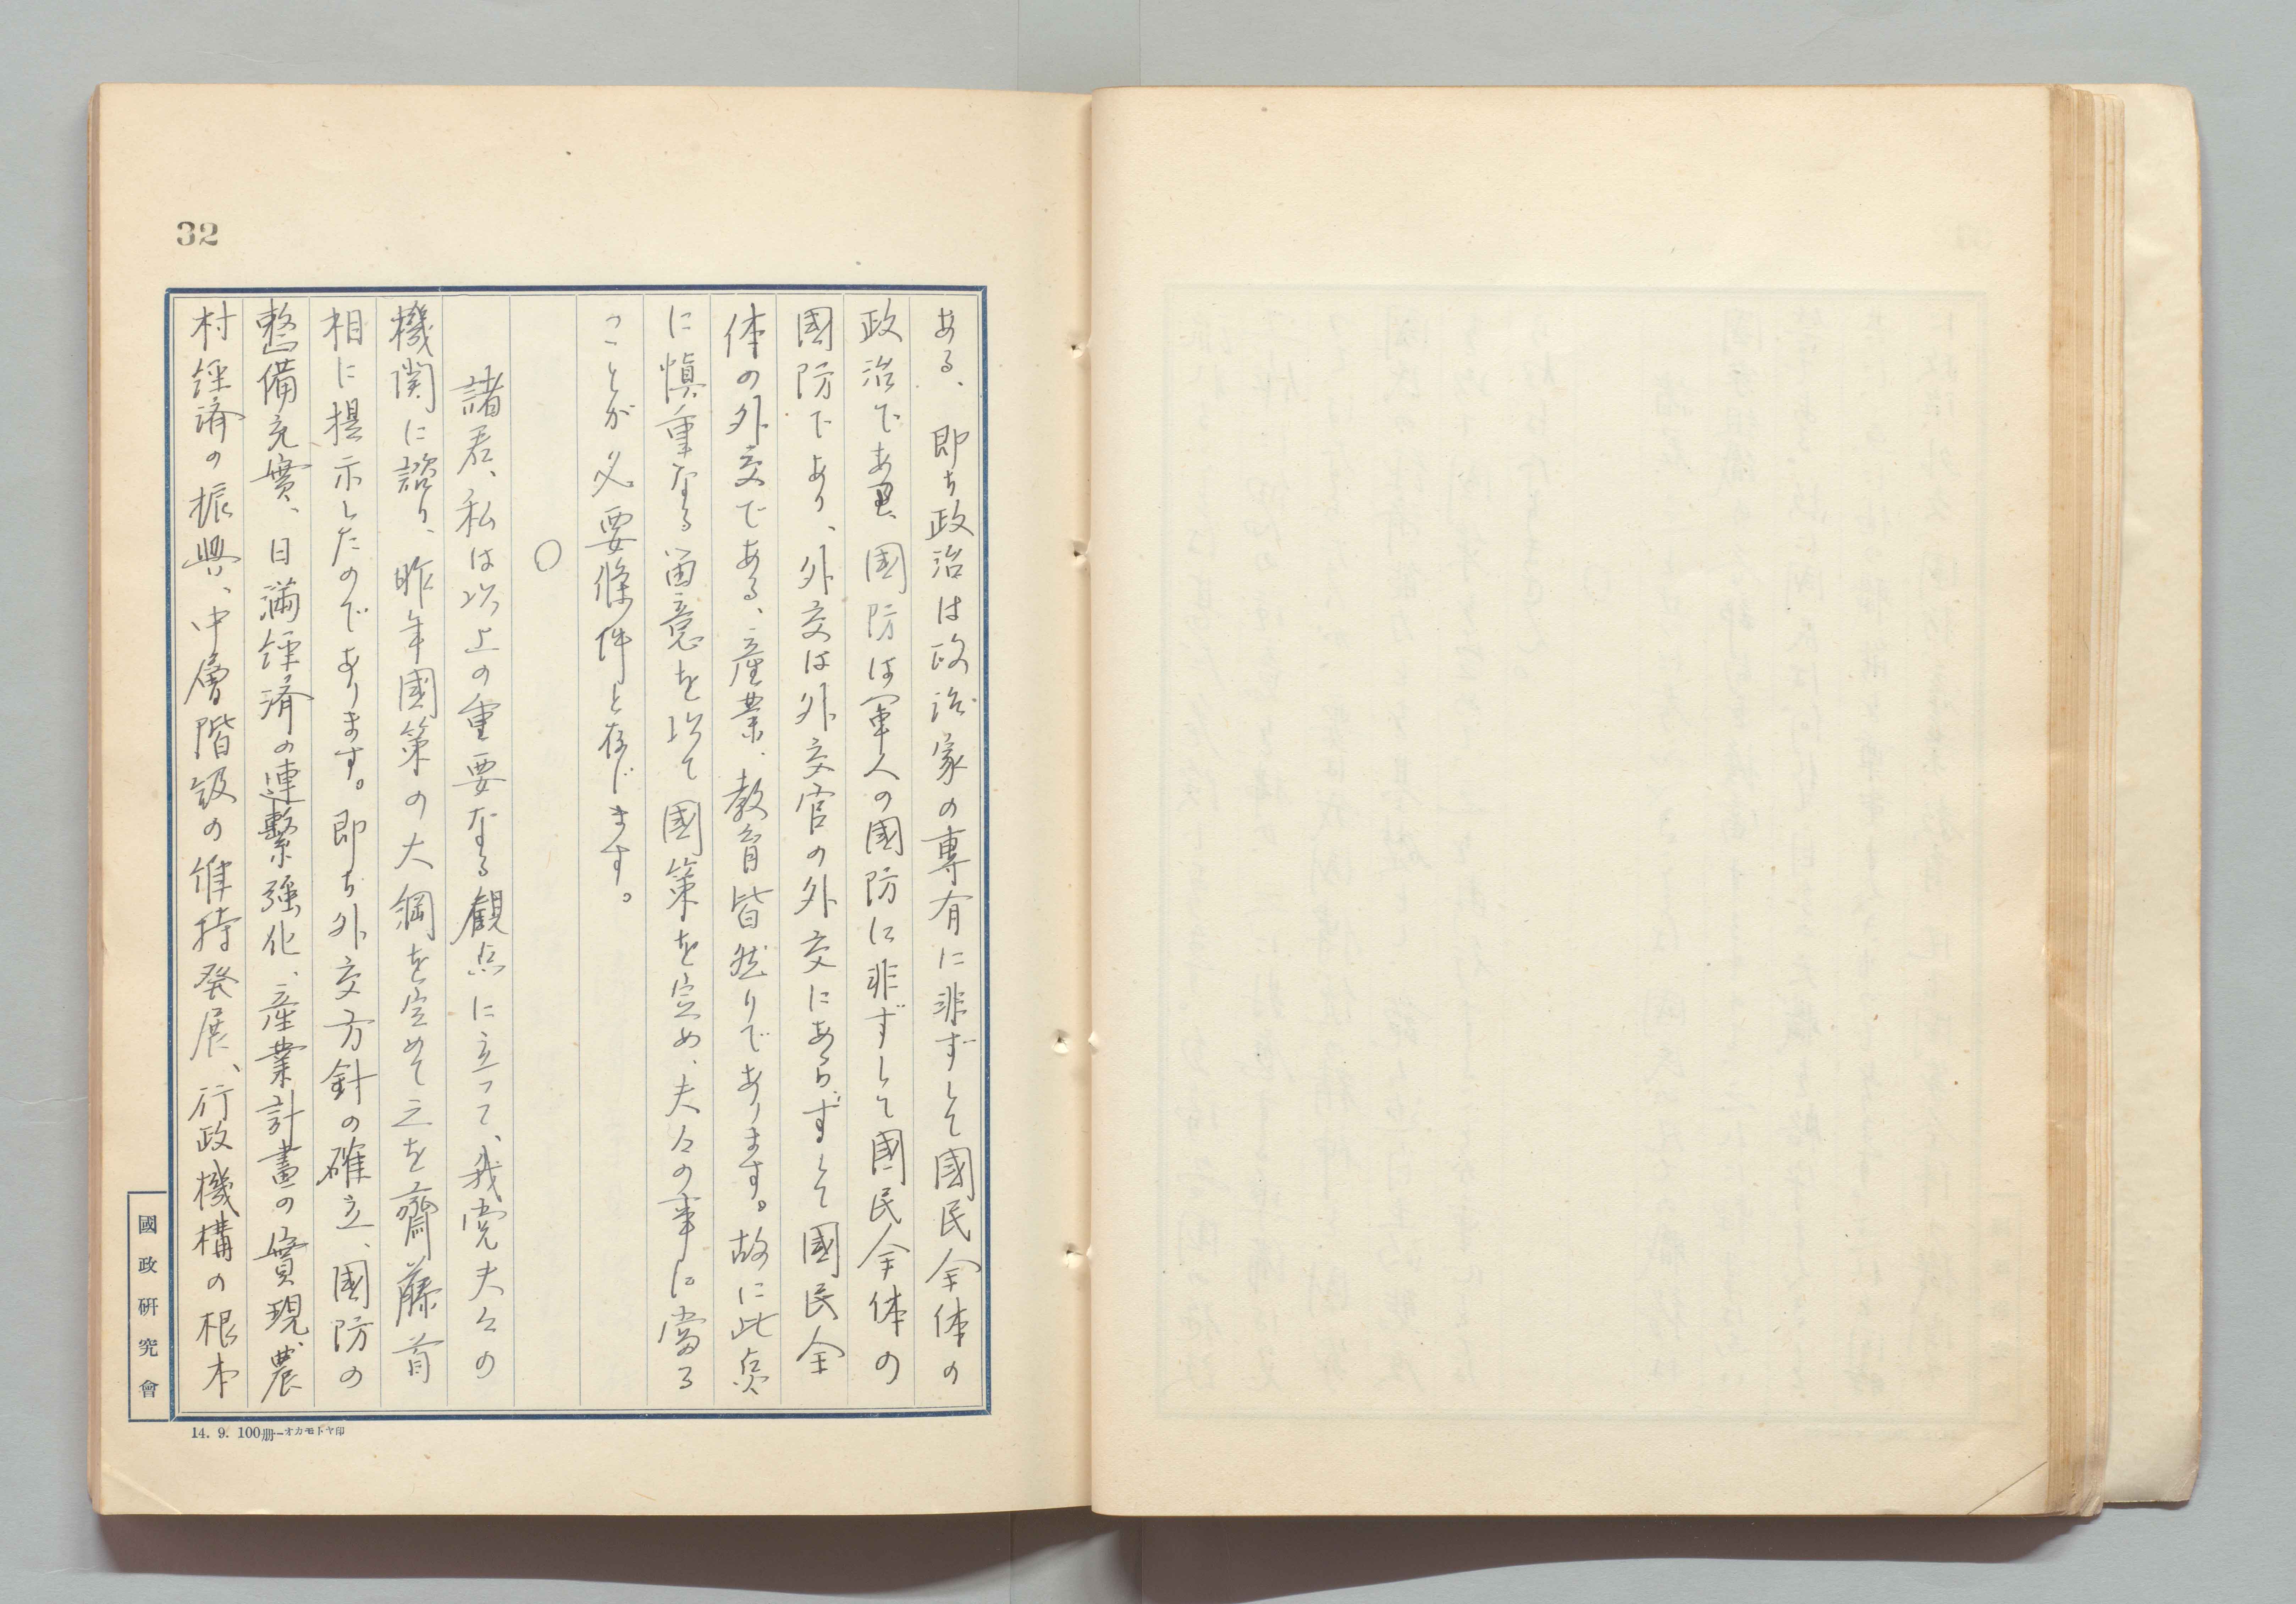 32
ある、即ち政治は政治家の專有に非ずして國民全体の
政治であり、國防は軍人の國防に非ずして國民全体の
國防であり、外交は外交官の外交にあらずして國民全
体の外交である、産業、教育皆然りであります。故に此点
に慎重なる留意を以て國策を定め、夫々の事に當る
ことが必要條件と存じます。
〇
諸君、私は以上の重要なる観点に立つて、我党夫々の
機関に諮り、昨年國策の大綱を定めて之を齋藤首
相に提示したのであります。即ち外交方針の確立、國防の
整備充實、日満経済の連繋強化、産業計畫の實現、農
村経済の振興、中層階級の維持発展、行政機構の根本
國政研究會
14. 9. 100册—オカモトヤ印